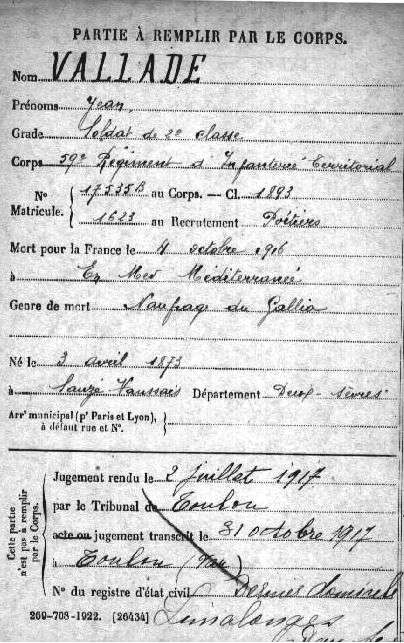 PARTIE À REMPLIR PAR LE CORPS.
Nom VALLADE
Prénoms Jean
Grade Soldat de 2e classe
Corps 59e Régiment d'Infanterie Territorial
No 17535B au Corps. — Cl. 1893
Matricule. 1623 au Recrutement Poitiers
Mort pour la France le 4 octobre 1916
à En Mer Méditerranée
Genre de mort Naufrage du Gallia
Né le 3 avril 1873
à Sauzé Vaussais Département Deux-Sèvres
Arrt municipal (pr Paris et Lyon),
à défaut rue et No.
Cette partie
n'est pas à remplir
par le Corps.
Jugement rendu le 2 juillet 1917
par le Tribunal de Toulon
acte ou jugement transcrit le 31 octobre 1917
à Toulon (Var)
No du registre d'état civil Dernier domicile
269-708-1922. [26434] Limalonges